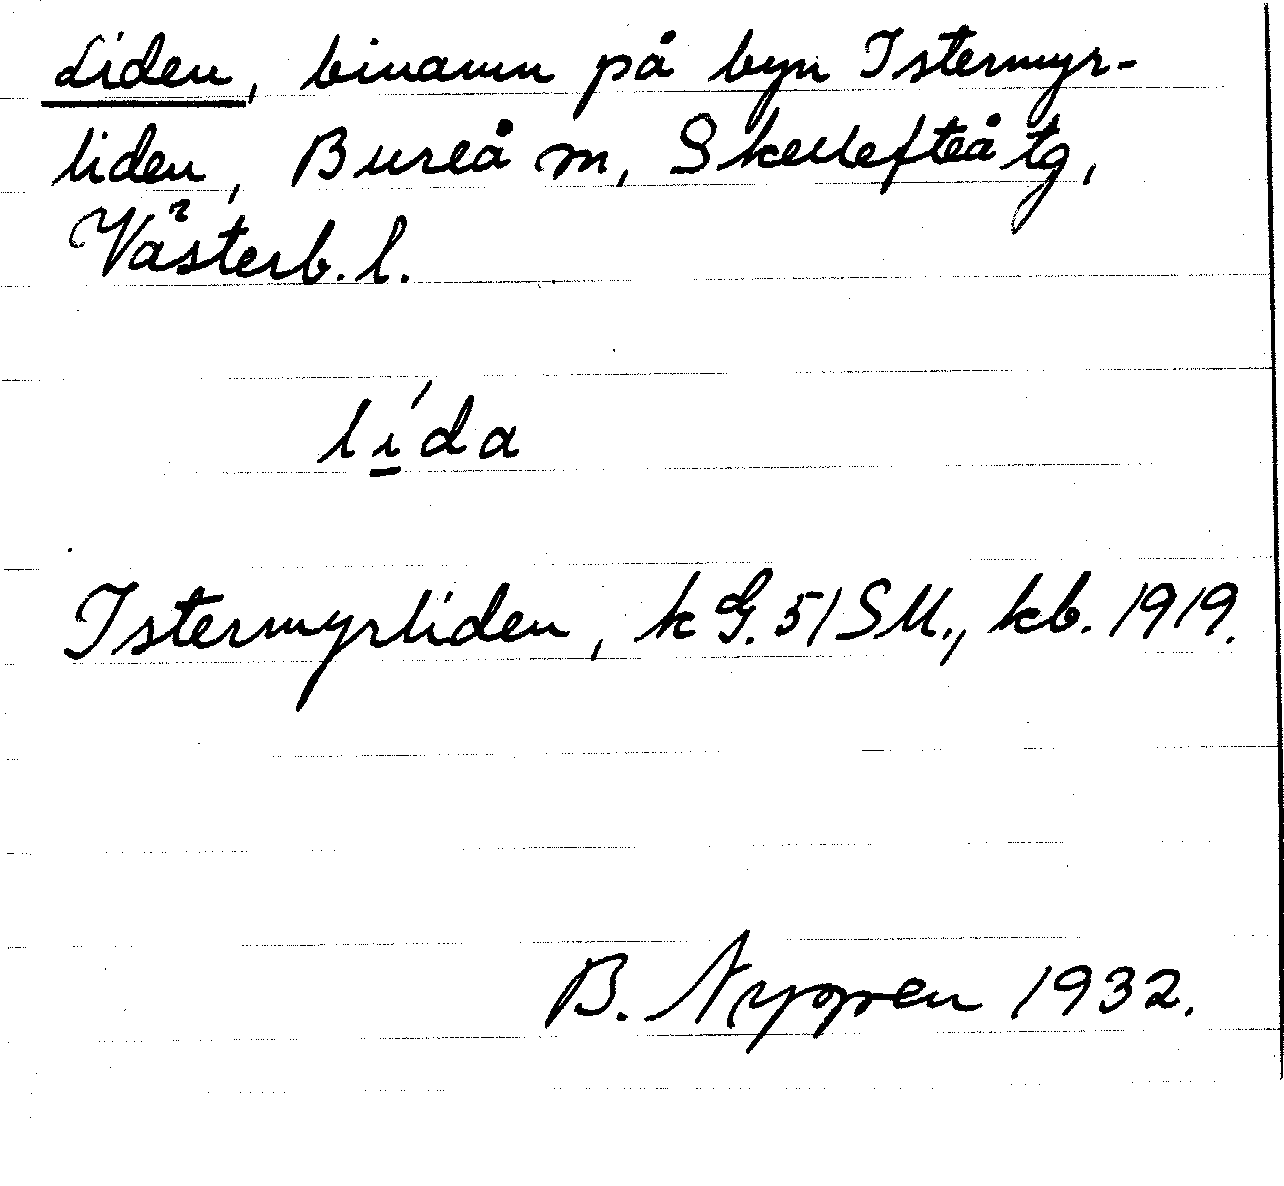 Liden, binamn på byn Istermyr-
liden, Bureå m, Skellefteå tg,
Västerb. l.
lí̱da
Istermyrliden, k G. 51 SM., kb. 1919.
B. Nygren 1932.